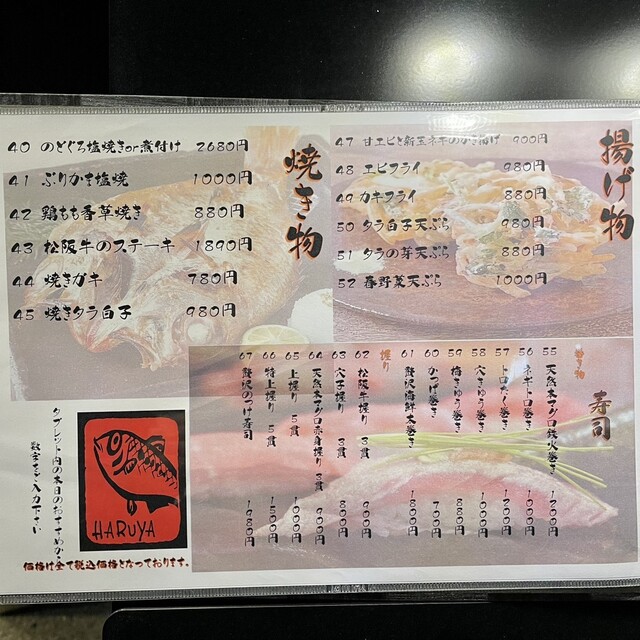 焼き物
40 のどぐろ塩焼きor煮付け 2680円
41 ぶりかま塩焼 1000円
42 鶏もも香草焼き 880円
43 松阪牛のステーキ 1890円
44 焼きガキ 780円
45 焼きタラ白子 980円
揚げ物
47 甘エビと新玉ネギのかき揚げ 900円
48 エビフライ 980円
49 カキフライ 880円
50 タラ白子天ぷら 980円
51 タラの芽天ぷら 880円
52 春野菜天ぷら 1000円
寿司
巻き物
55 天然本マグロ鉄火巻き 1200
56 ネギトロ巻き 1000
57 トロたく巻き 1200
58 穴きゅう巻き 1000
59 梅きゅう巻き 880
60 かっぱ巻き 700
61 贅沢海鮮太巻き 1800
握り
62 松阪牛握り 2貫 900
63 穴子握り 2貫 800
64 天然本マグロ赤身握り 2貫 900
65 上握り 5貫 1000
66 特上握り 5貫 1500
67 贅沢のっけ寿司 1980円
タブレット内の本日のおすすめから
数字をご入力下さい
HARUYA
価格は全て税込価格となっております。